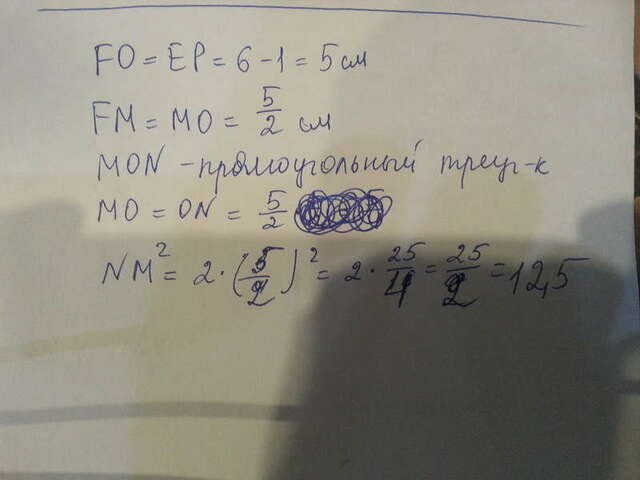 FO = EP = 6 - 1 = 5 см
FM = MO = 5/2 см
MON - прямоугольный треуг-к
MO = ON = 5/2
NM² = 2 · (5/2)² = 2 · 25/4 = 25/2 = 12,5